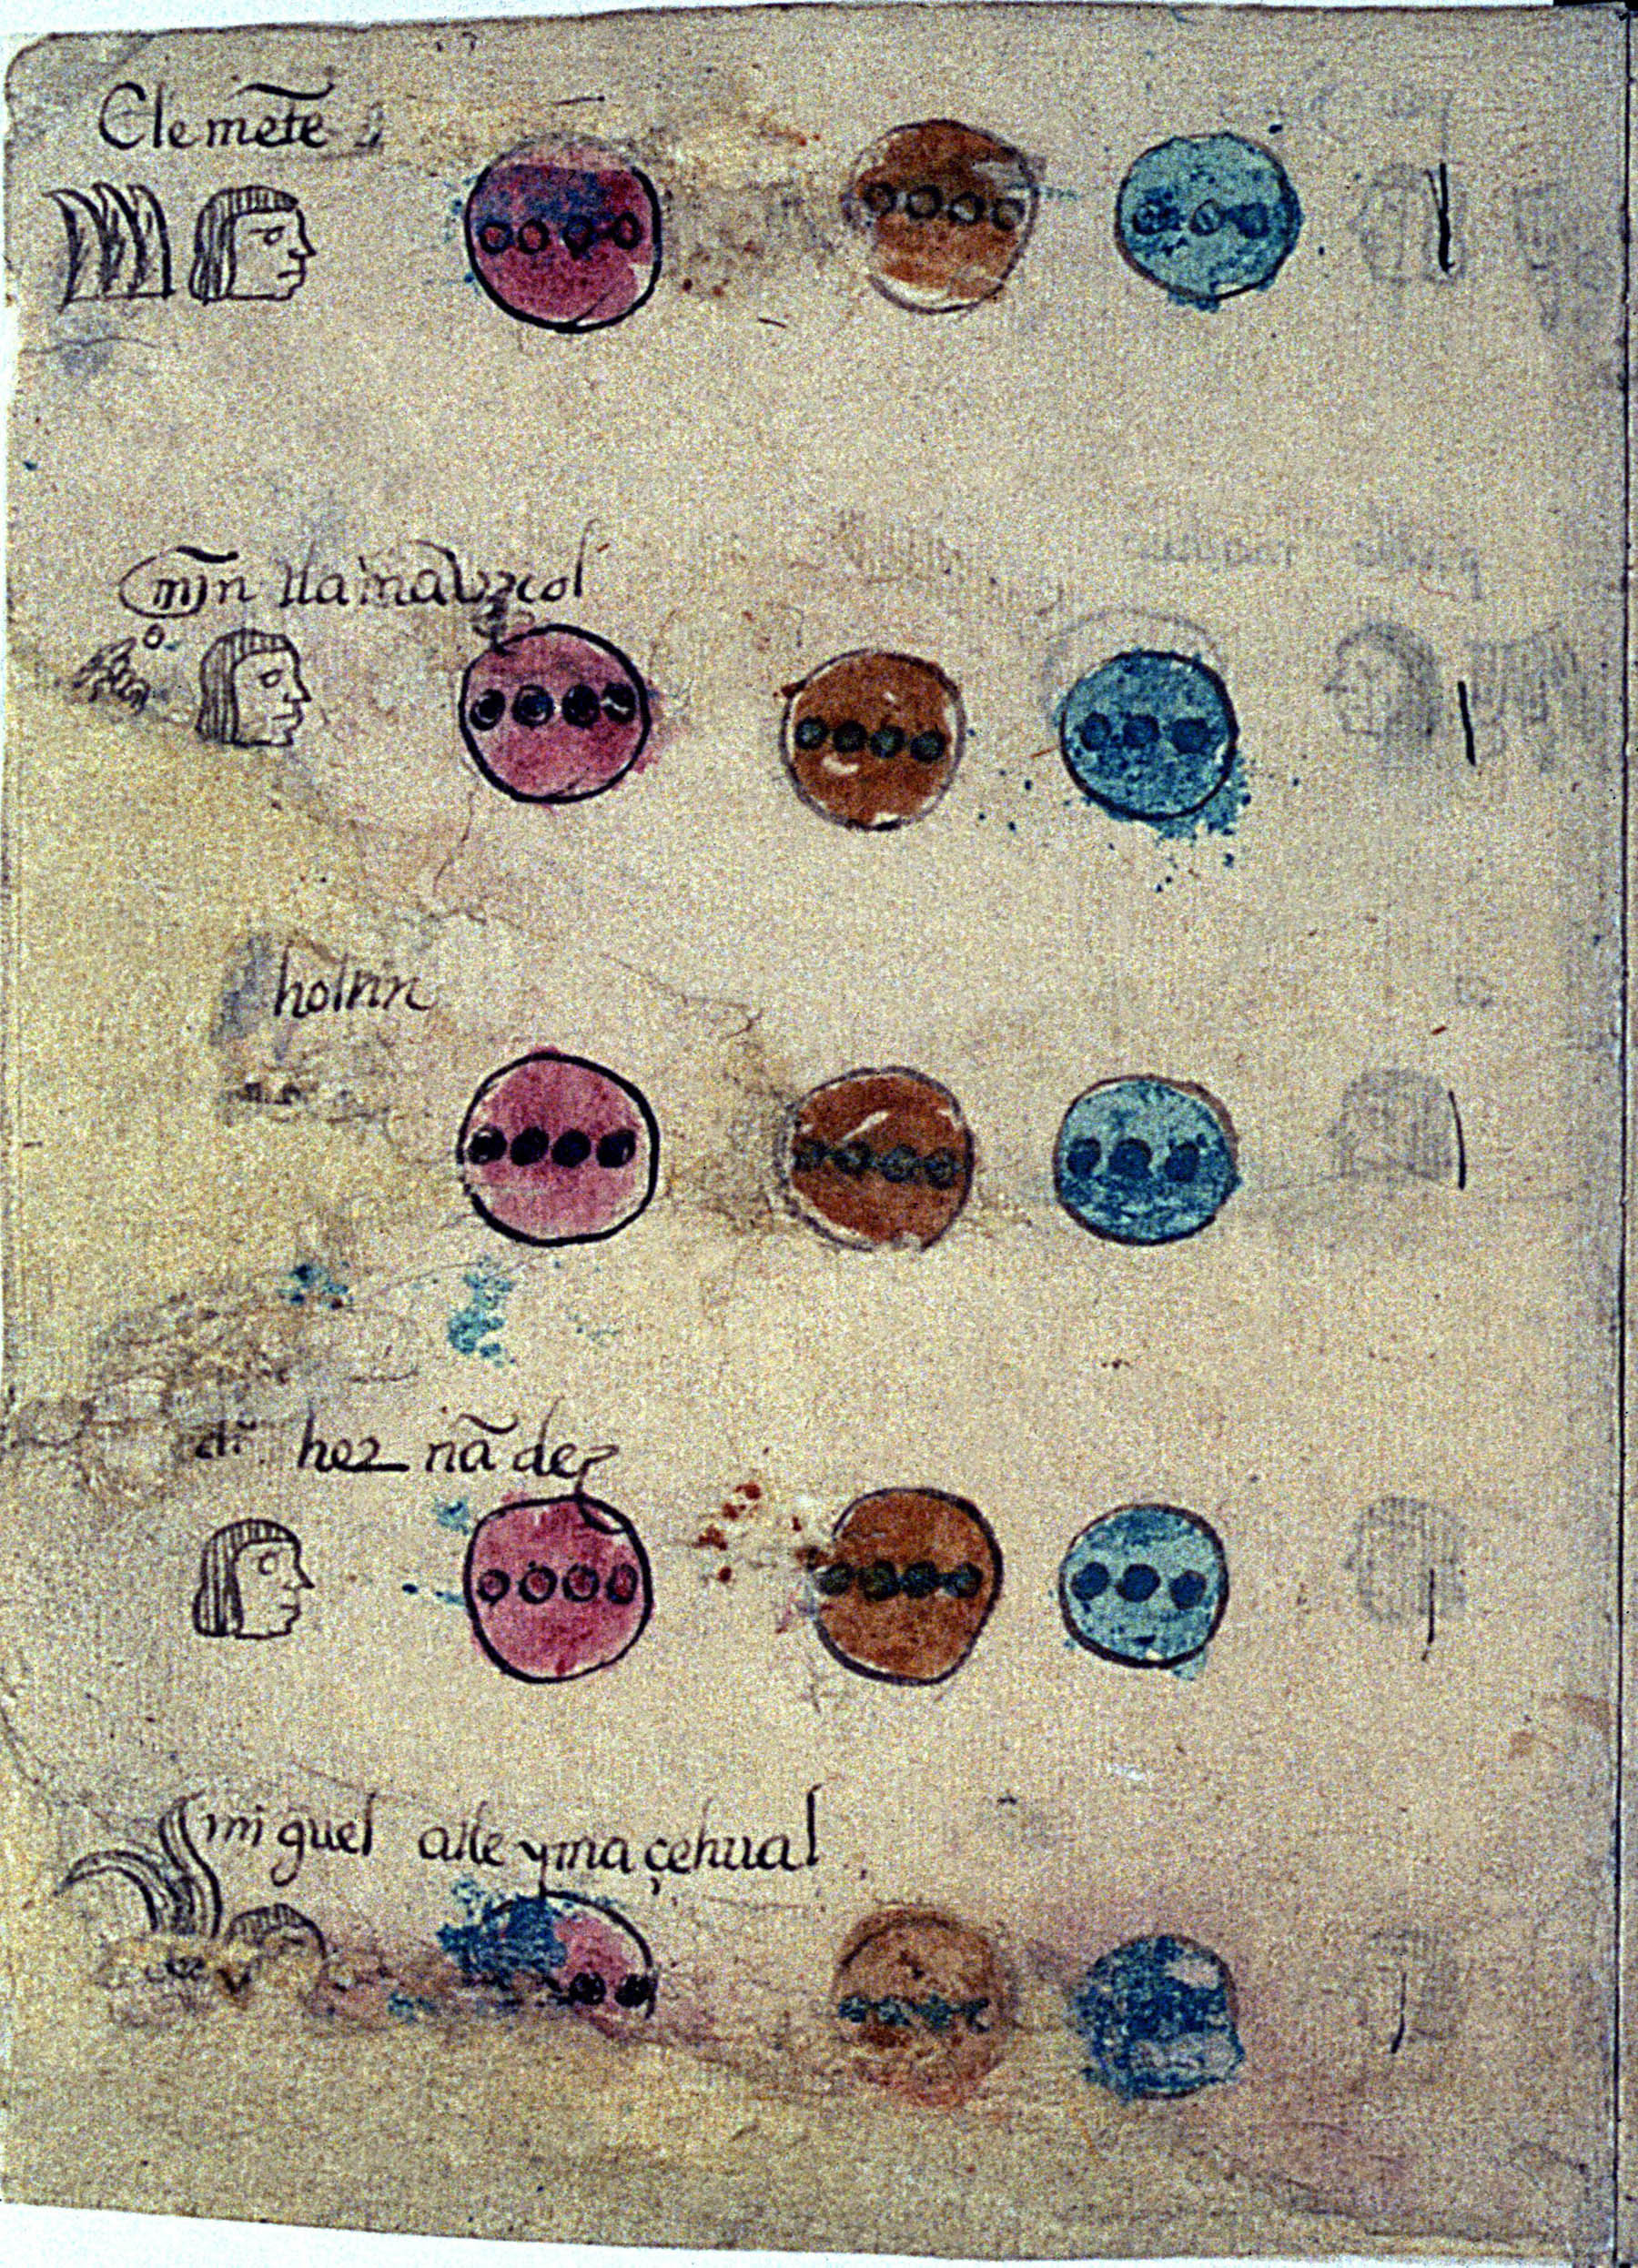 Clemẽte
mĩn tlamauzcol
holnin
dỉ hernãdez
miguel atle ymaçehual